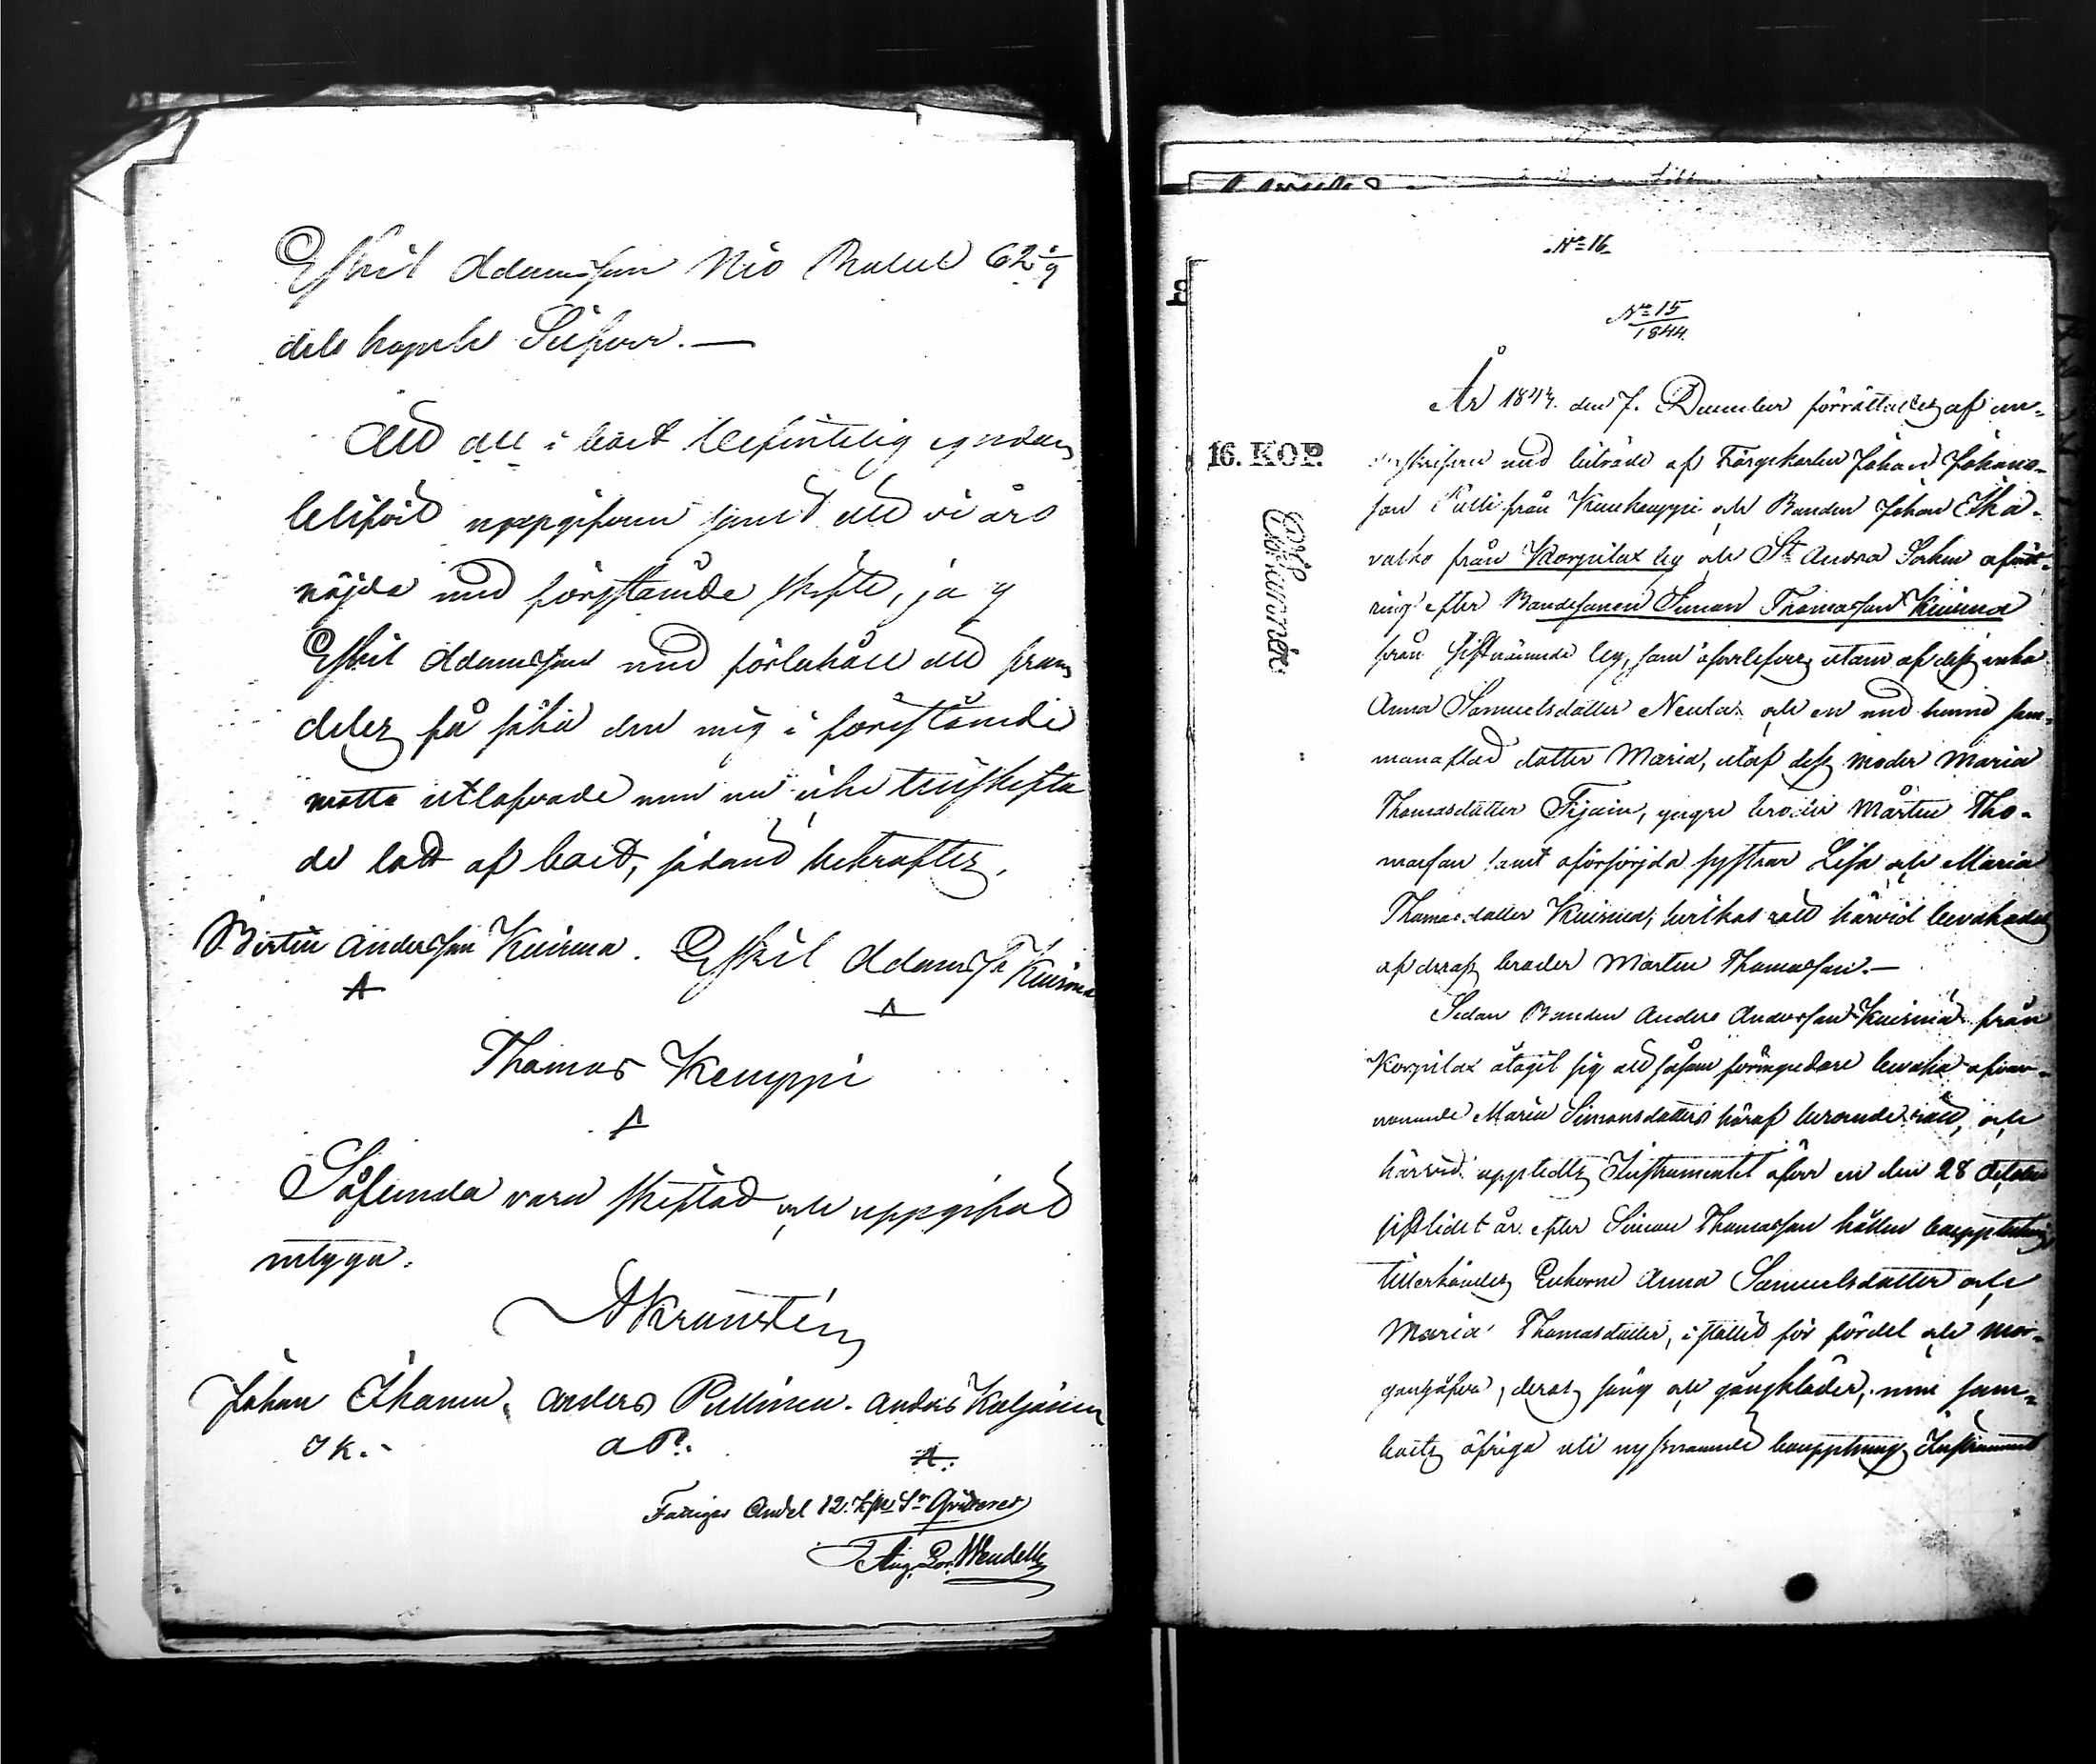 Eskil Adamsson Nio Rubel 62 2/9
dels kopek Silfver. —
Att allt i boet befinteligt egendom
blifvit uppgifven samt att vi äro
nöjda med förestående skifte, jag
Eskil Adamsson med förbehåll att fram-
deles få söka den mig i förestående
måtto utlofvade men nu icke tillskifta-
de lott af boet, sådant bekräftes,
Bertil Andersson Kuisma. Eskil Adamss. Kuisma
Thomas Kemppi
Sålunda vara skiftadt och uppgifvet
intyga.
A Kranstén
Johan Ikonen, Anders Pullinen. Anders Kaljunen
I K. A P.
Fattiges Andel 12. Kpk Sr qvitteras
Aug. Wendell
No 16
No 15
1844.
År 1844. den 7. December förrättades af un-
dertecknad med biträde af Färgekarlen Johan Johans-
son Pulli från Kaukemppi och Bonden Johan Ika-
valko från Korpilax by och St Andrea Socken afvit-
tring efter Bondesonen Simon Thomasson Kuisma
från sistnämnde by, som öfverlefves utom af dess enka
Anna Samuelsdotter Neula och en med henne sam-
manaflad dotter Maria, utaf dess moder Maria
Thomasdotter Tijain, yngre broder Mårten Tho-
masson samt oförsörjda systrar Lisa och Maria
Thomasdotter Kuisma, hvilkas rätt härvid bevakades
af deras broder Mårten Thomasson. —
Sedan Bonden Anders Andersson Kuisma från
Korpilax åtagit sig att såsom förmyndare bevaka ofvan-
nämnde Maria Simonsdotters häraf beroende rätt, och
härvid upplästes Instrumentet öfver en den 28 October
sistlidet år efter Simon Thomasson hållen bouppteckning,
tillerkändes Enkorne Anna Samuelsdotter och
Maria Thomasdotter, i stället för fördel och mor-
gongåfva, deras säng och gångkläder, men sam-
boets öfriga uti nyssnämnde bouppteckning Instrument
16. KOP.